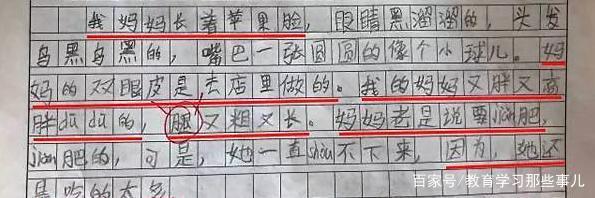 我妈妈长着苹果脸,眼睛黑溜溜的,头发
乌黑乌黑的,嘴巴一张圆圆的像个小球儿。妈
妈的双眼皮是,去店里做的。我的妈妈又胖又高
胖dū dū的,腿又粗又长。妈妈老是说要jiǎn肥,
jiǎn肥的,可是,她一直shòu不下来,因为,她还
是吃的太多
百家号/教育学习那些事儿